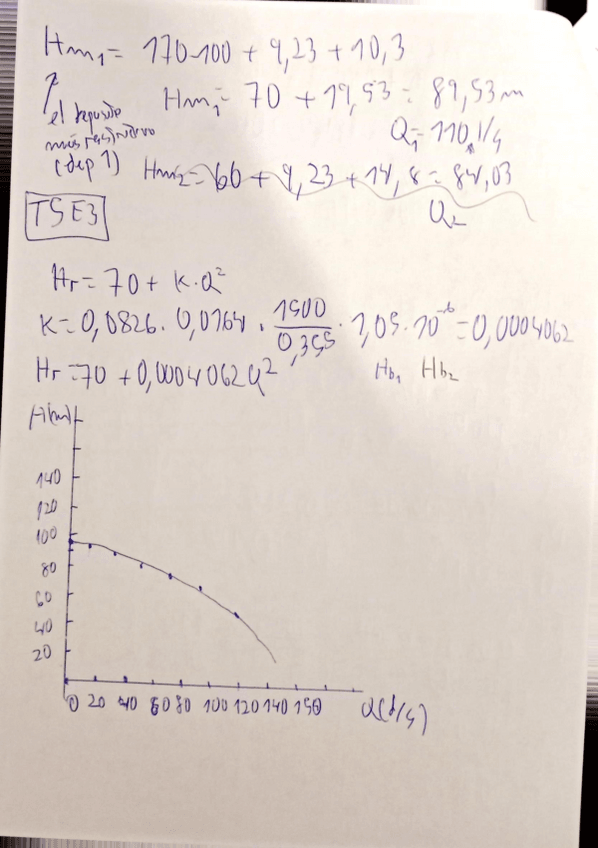 Hm₁ = 170-100 + 9,23 + 10,3
Hm₁ = 70 + 19,53 = 89,53m
el depósito
más restrictivo
(dep 1)
Q₁ = 110 l/s
Hm₂ = 60 + 9,23 + 14,8 = 84,03
Q₂
TSE3
Hr = 70 + K·Q²
K = 0,0826 · 0,0164 · 1500/0,355 · 1,05 · 10⁻⁶ = 0,0004062
Hr = 70 + 0,0004062Q²
Hb₁ Hb₂
H(m)
140
120
100
80
60
40
20
0 20 40 60 80 100 120 140 150 Q(l/s)